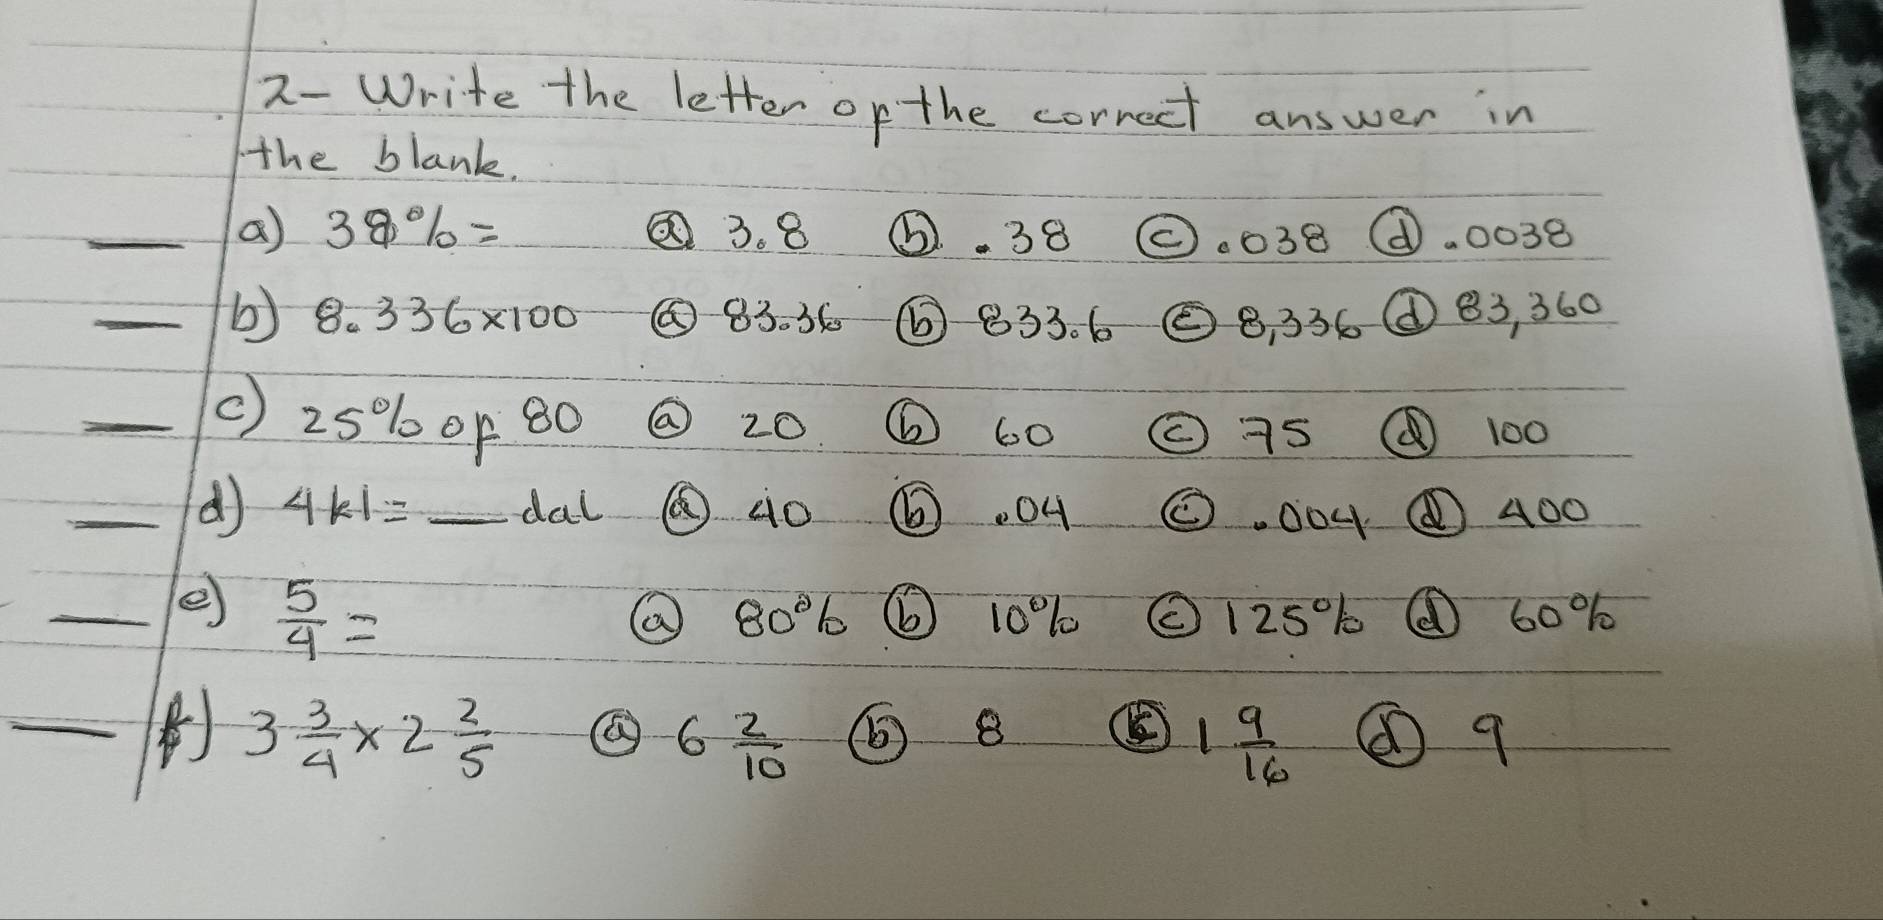 2- Write the letter of the correct answer in
the blank.
— a) 38%= ⓐ 3.8 ⓑ .38 ⓒ .038 ⓓ .0038
— b) 8.336×100 ⓐ 83.36 ⓑ 833.6 ⓒ 8,336 ⓓ 83,360
— c) 25% of 80 ⓐ 20 ⓑ 60 ⓒ 75 ⓓ 100
— d) 4kl= — dal ⓐ 40 ⓑ .04 ⓒ .004 ⓓ 400
— e) 5/4 = ⓐ 80% ⓑ 10% ⓒ 125% ⓓ 60%
— f) 3 3/4 × 2 2/5 ⓐ 6 2/10 ⓑ 8 ⓒ 1 9/16 ⓓ 9